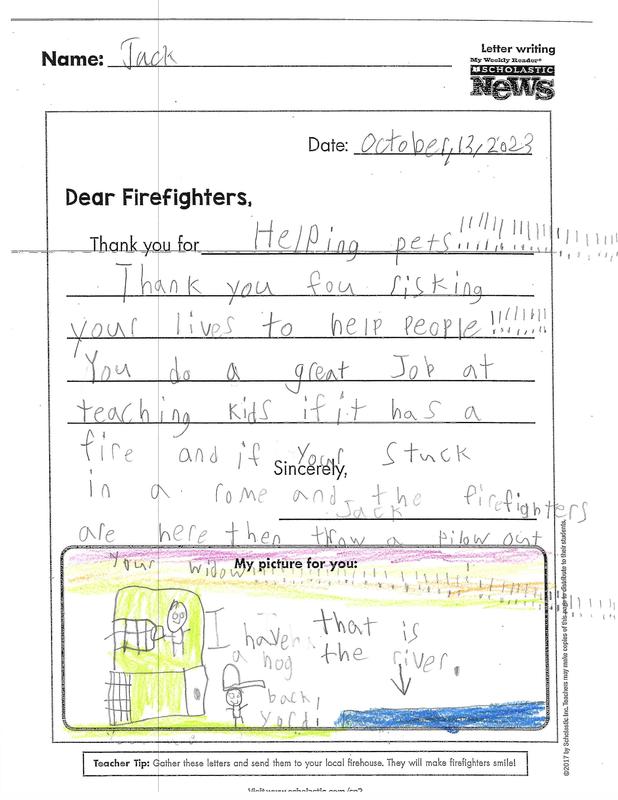 Name: Jack
Letter writing
My Weekly Reader®
SCHOLASTIC
NEWS
Date: October,13,2023
Dear Firefighters,
Thank you for Helping pets!!!!!!!!!!!!!!!!!!!!
Thank you fou risking
your lives to help people!!!!!!!
You do a great Job at
teaching kids if it has a
fire and if your stuck
Sincerely,
in a rome and the firefighters
Jack
are here then throw a pilow out
My picture for you:
your widow!!!!!!!!!!!!!!!!!!!!
I haven
a hog
back
yard!
that is
the river.
Teacher Tip: Gather these letters and send them to your local firehouse. They will make firefighters smile!
©2017 by Scholastic Inc. Teachers may make copies of this page to distribute to their students.